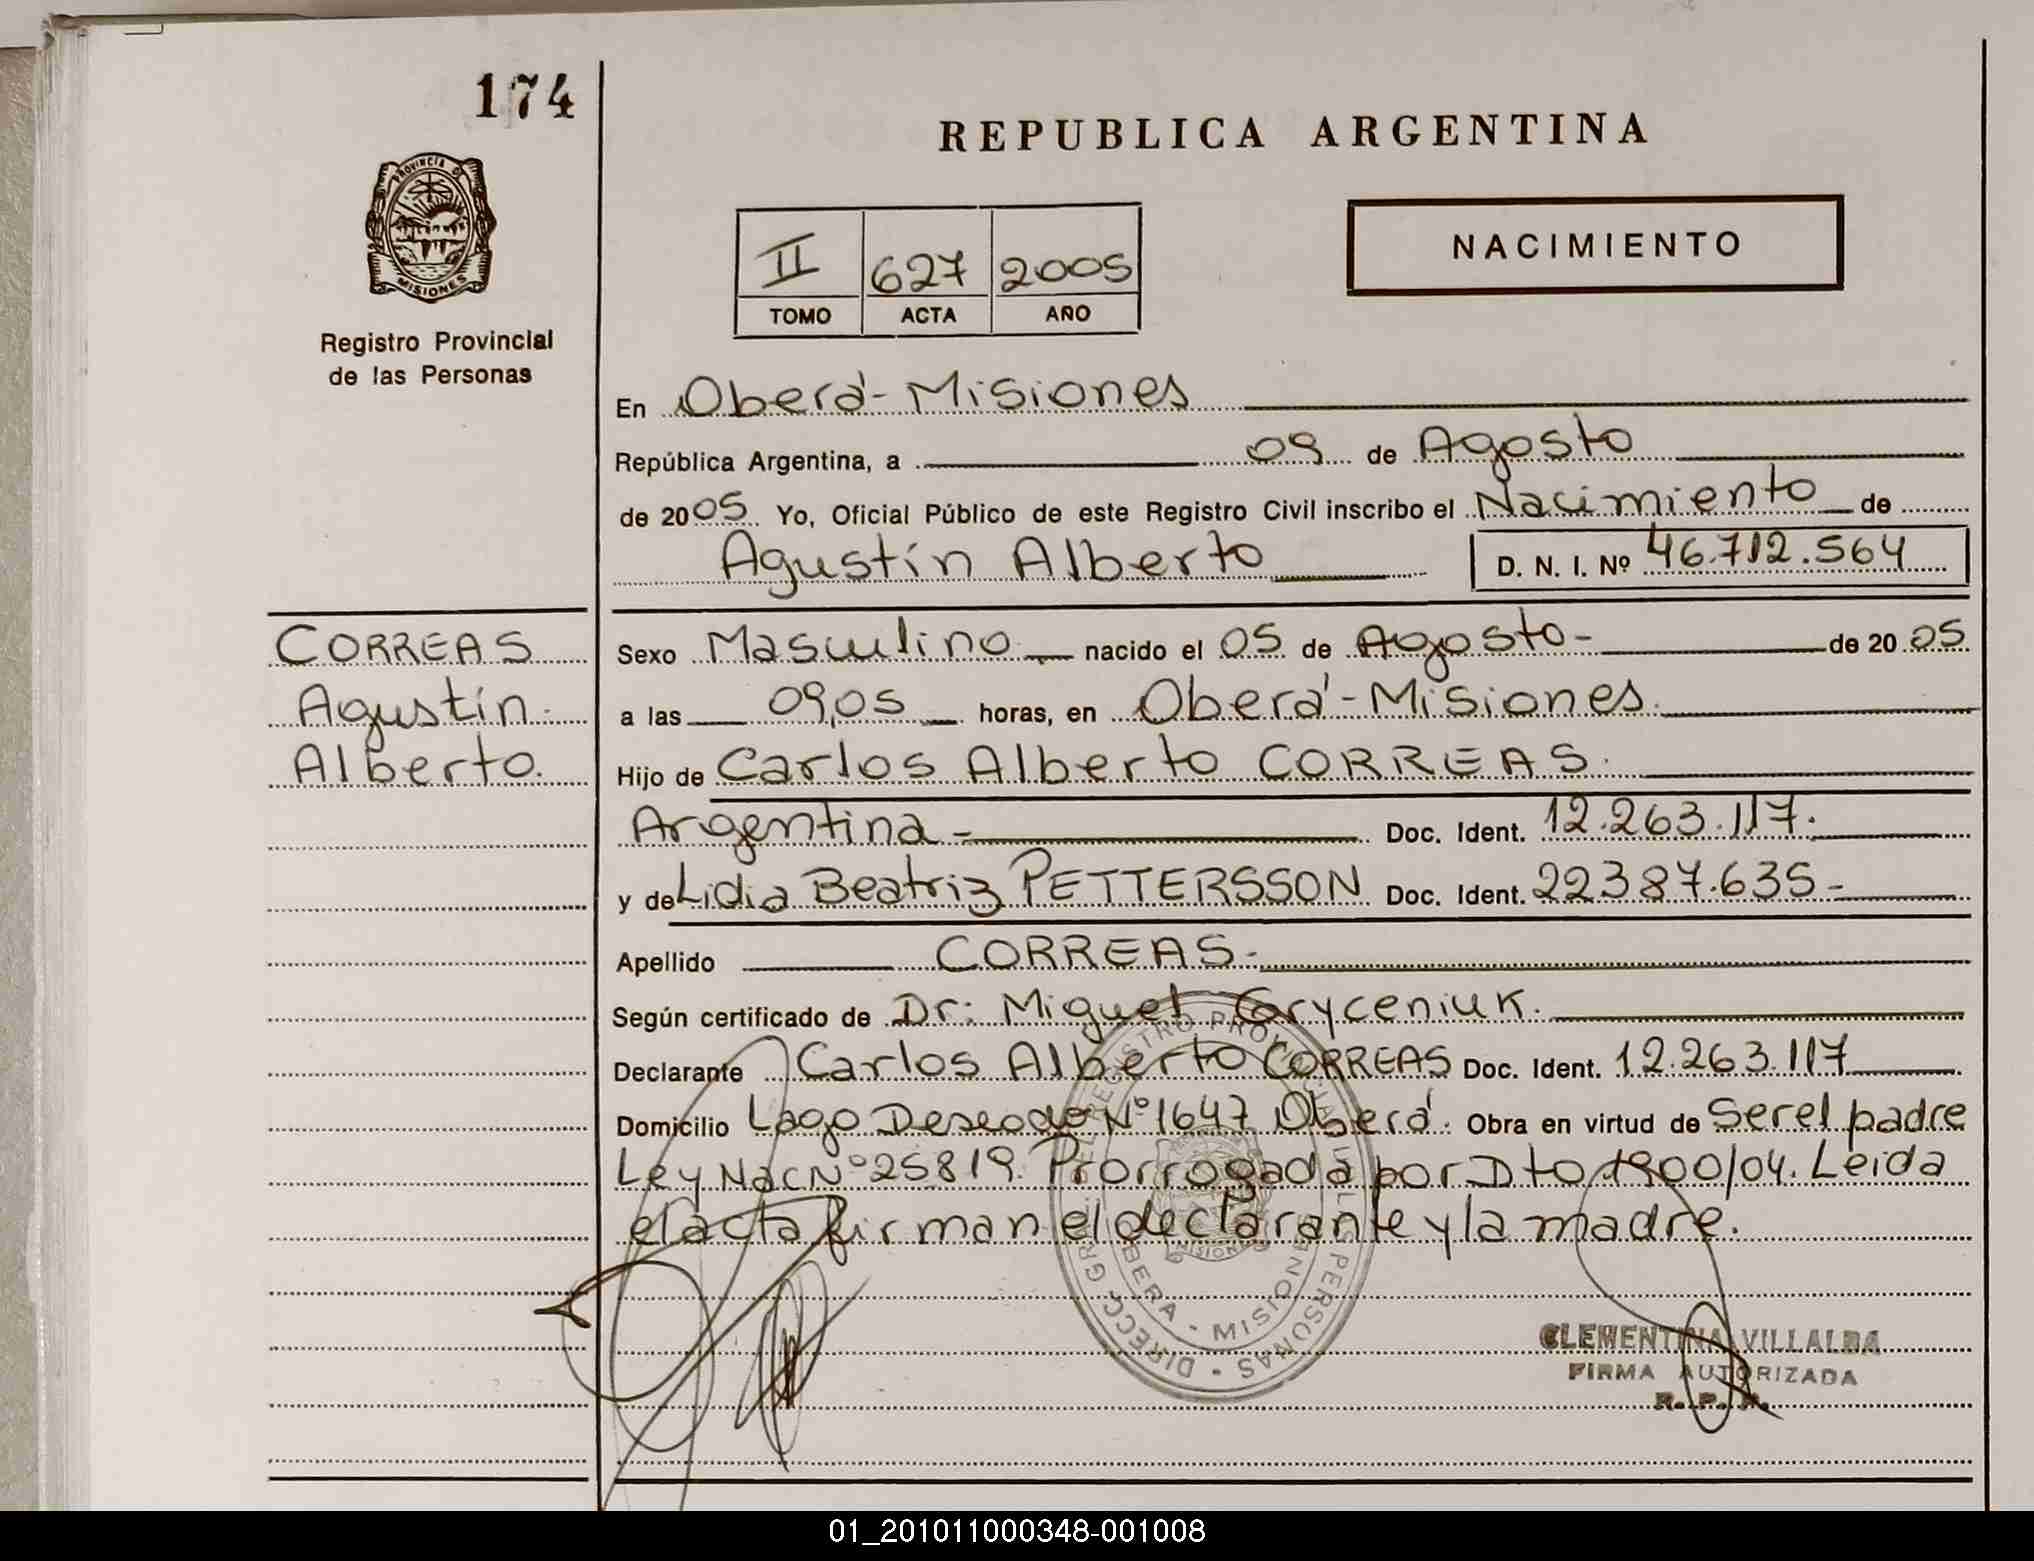 174
PROVINCIA DE
MISIONES
Registro Provincial
de las Personas
REPUBLICA ARGENTINA
II 627 2005
TOMO ACTA AÑO
NACIMIENTO
En Oberá - Misiones
República Argentina, a 09 de Agosto
de 2005 Yo, Oficial Público de este Registro Civil inscribo el Nacimiento de
Agustín Alberto D. N. I. Nº 46.712.564
CORREAS
Agustín
Alberto.
Sexo Masculino nacido el 05 de Agosto - de 2005
a las 09,05 horas, en Oberá - Misiones.
Hijo de Carlos Alberto CORREAS.
Argentina - Doc. Ident. 12.263.117.
y de Lidia Beatriz PETTERSSON Doc. Ident. 22387.635 -
Apellido CORREAS -
Según certificado de Dr: Miguel Gryceniuk.
Declarante Carlos Alberto CORREAS Doc. Ident. 12.263.117
Domicilio Lago Deseado Nº 1647 Oberá. Obra en virtud de Ser el padre
Ley Nac Nº 25819. Prorrogada por Dto 1900/04. Leida
el acta firman el declarante y la madre.
DIRECC. GRAL. DEL REGISTRO PROVINCIAL DE LAS PERSONAS
OBERA - MISIONES
MISIONES
CLEMENTINA VILLALBA
FIRMA AUTORIZADA
R. P. P.
01_201011000348-001008